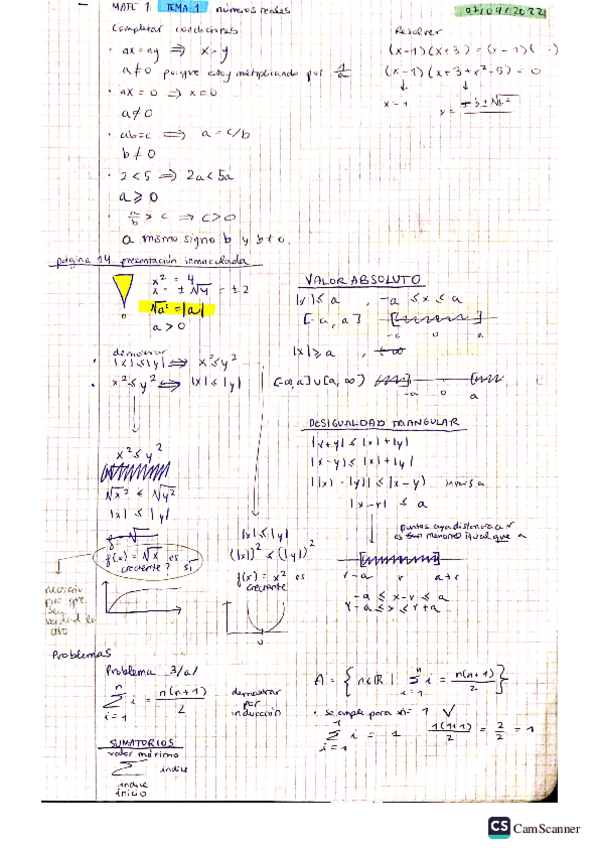 MATE 1 TEMA 1 números reales
07/09/2022
Completar condiciones
· ax = ay ⟹ x = y
a ≠ 0 porque estoy multiplicando por 1/a
· ax = 0 ⟹ x = 0
a ≠ 0
· ab = c ⟹ a = c/b
b ≠ 0
· 2 < 5 ⟹ 2a < 5a
a ⩾ 0
· a/b > c ⟹ c > 0
a mismo signo b y b ≠ 0.
Resolver
(x-1)(x+3) = (x-1)(
(x-1)(x+3+x²-5) = 0
x = 1
página 14 presentación inmaculada
x² = 4
x = ± √4 = ± 2
√a² = |a|
a > 0
demostrar
· |x| ≤ |y| ⟺ x² ≤ y²
· x² ≤ y² ⟺ |x| ≤ |y|
x² ≤ y²
√x² ≤ √y²
|x| ≤ |y|
f(x) = √x es
creciente? sí
|x| ≤ |y|
(|x|)² ≤ (|y|)²
f(x) = x² es
creciente
VALOR ABSOLUTO
|x| ≤ a , -a ≤ x ≤ a
[-a, a]
-a 0 a
|x| ⩾ a ,
(-∞, a] ∪ [a, ∞)
-a 0 a
DESIGUALDAD TRIANGULAR
|x+y| ≤ |x| + |y|
|x-y| ≤ |x| + |y|
||x| - |y|| ≤ |x-y| inversa
|x-r| ≤ a
puntos cuya distancia a r
es menor o igual que a
r-a r a+r
-a ≤ x-r ≤ a
r-a ≤ x ≤ r+a
Problemas
Problema 3/a/
n
∑ i = n(n+1)/2
i=1
demostrar
por
inducción
A = { n∈ℝ | ∑ i = n(n+1)/2 }
· se cumple para n = 1 ✓
1
∑ i = 1 1(1+1)/2 = 2/2 = 1
i=1
SUMATORIOS
valor máximo
∑ índice
índice
inicio
CS CamScanner